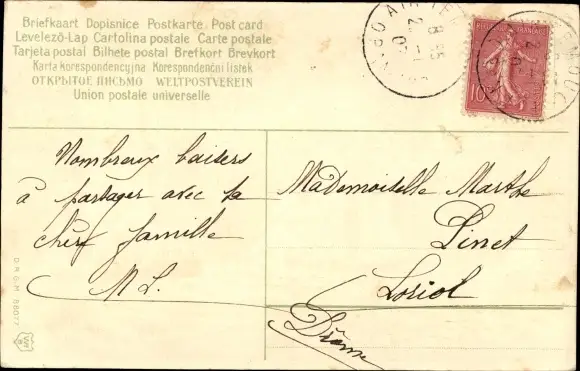 Briefkaart Dopisnice Postkarte Post card
Levelező-Lap Cartolina postale Carte postale
Tarjeta postal Bilhete postal Brefkort Brevkort
Karta korespondencyjna Korespondenční lístek
ОТКРЫТОЕ ПИСЬМО WELTPOSTVEREIN
Union postale universelle
RÉPUBLIQUE FRANÇAISE
10
Nombreux baisers
à partager avec ta
chère famille
M L.
Mademoiselle Marthe
Linet
Loriol
Drôme